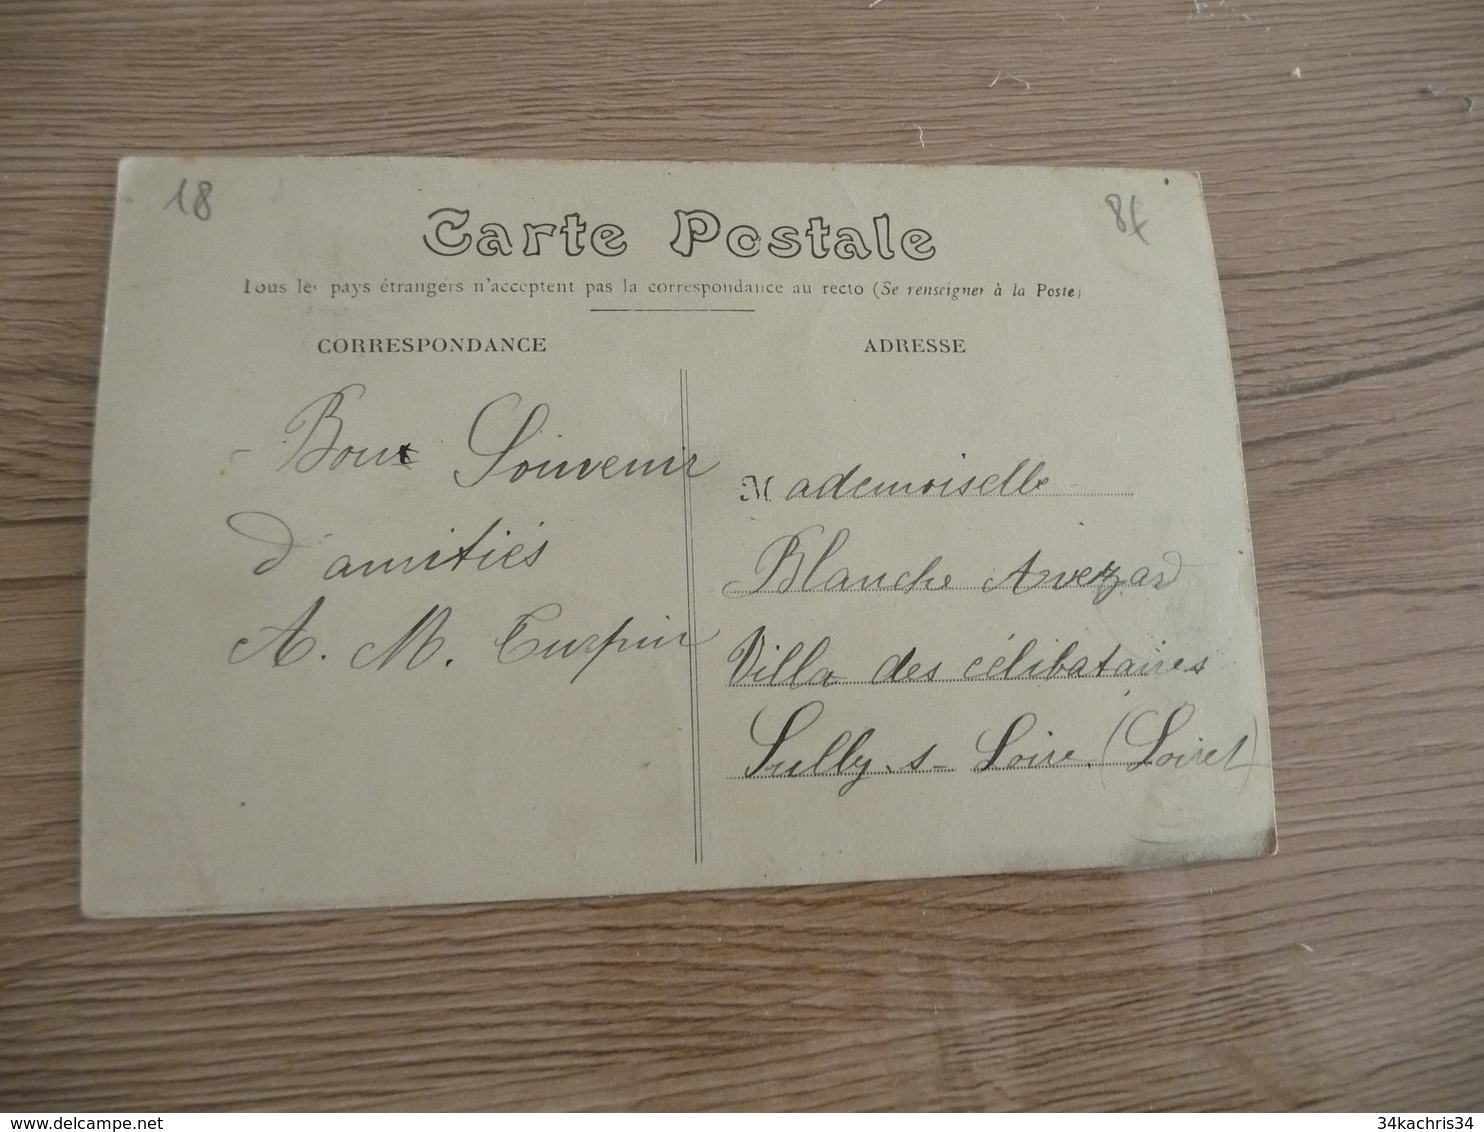 18
8f
Carte Postale
Tous les pays étrangers n'acceptent pas la correspondance au recto (Se renseigner à la Poste)
CORRESPONDANCE
Bon Souvenir
d'amitiés
A. M. Turpin
ADRESSE
Mademoiselle
Blanche Avezard
Villa des célibataires
Sully-s-Loire (Loiret)
34kachris34